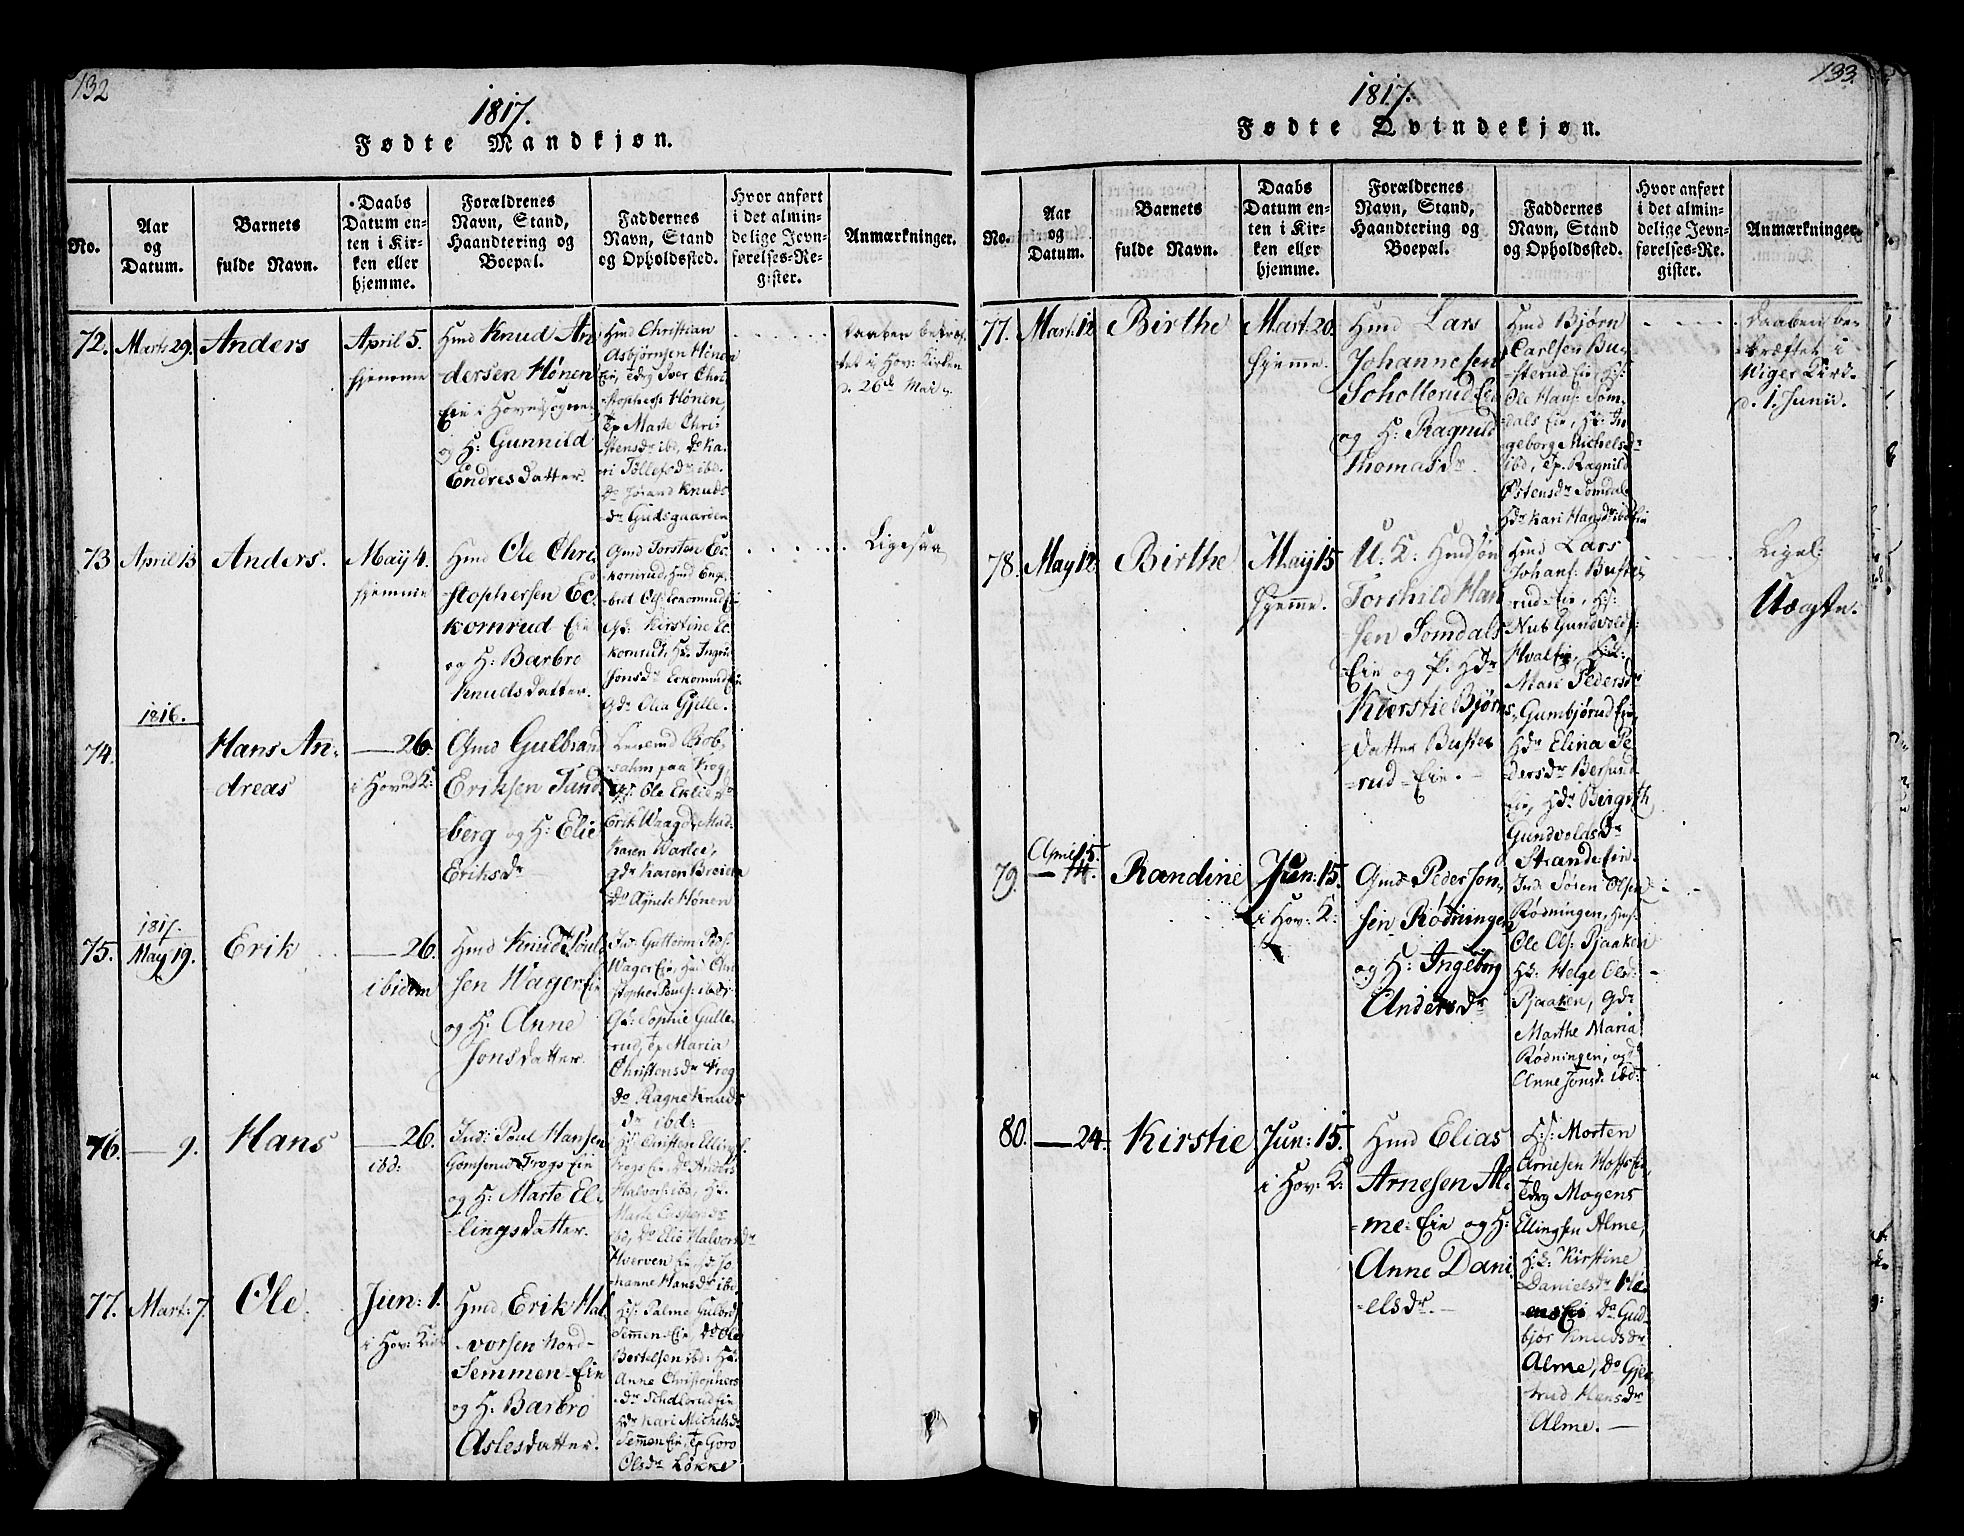 132
1817.
Fødte Mandkjøn.
No.
Aar
og
Datum.
Barnets
fulde Navn.
Daabs
Datum en-
ten i Kir-
ken eller
hjemme.
Forældrenes
Navn, Stand,
Haandtering og
Boepæl.
Faddernes
Navn, Stand
og Opholdssted.
Hvor anført
i det almin-
delige Jevn-
førelses-Re-
gister.
Anmærkninger.
72.
Marts 29.
Anders
April 5.
hjemme
Hmd Knud An
dersen Hönen
Eie i Hovedsognet
og H: Gunnild
Endresdatter.
Hmd Christian
Asbjörnsen Hönen
Eie, Tdrg Iver Chri
stophers: Hönen
Tp Marte Chri-
stensdr ibd, Do Ka
ri Tollefsdr ibd.
Do Jörand Knuds
dr Gudsgaarden
Daaben bekræf-
tet i Hov: Kirken
d. 26de Mai
73
April 13
Anders.
May 4.
hjemme
Hmd Ole Chri
stophersen Ec
komrud Eie
og H: Barbro
Knudsdatter.
Gmd Torsten Ec
komrud, Hmd Eng
bret Ol: Eckomrud Eie
Gd: Kirstine Ec
komrud, Hd: Ingri
Jonsdr Eckomrud Eie
Gdr Olea Gjelle.
Ligesaa
1816.
74.
Hans An-
dreas
— 26.
i Hoved K:
Gmd Gulbrand
Eriksen Tand
berg og H: Elie
Eriksdr
paa Krog
Erik Waager, Mad:
Karen
Gdr Karen Breien
Do Agnete Hönen
1817.
75.
May 19.
Erik
— 26.
ibidem
Hmd Knud Poul
sen Wager Eie
og H: Anne
Jonsdatter.
Ind: Guttorm
Wager Eie, Hmd Chri
stopher Pouls: ibdr
Gd: Sophie Gulle-
rud, Tp Maria
Christensdr Krog
Do Ragne Knuds
dr ibd:
76.
— 9.
Hans
— 26.
ibd:
Ind: Poul Hansen
Gomsrud Frogs Eie
og H: Marte El-
lingsdatter.
Frogs Eie Do Anders
Halvors: ibd, Hd.
Marte
ibd, Do Elie Halvorsdr
Hverven Eie Hd Jo
hanne Hansdr ibd
77.
Mart: 7.
Ole.
Jun: 1.
i Hov: Kirk
Hmd, Erik Hal
vorsen Nord-
Semmen Eie
og H: Barbro
Aslesdatter.
Hs: Palme Gulbrds:
Semmen Eie, Do Ole
Bertelsen ibd: Hd.
Anne Christophers
dr Eie
Hdr Kari Michelsdr
Semmen Eie, Tp Goro
Olsdr Lökke
133.
1817.
Fødte Qvindekjøn.
No.
Aar
og
Datum.
Barnets
fulde Navn.
Daabs
Datum en-
ten i Kir-
ken eller
hjemme.
Forældrenes
Navn, Stand,
Haandtering og
Boepæl.
Faddernes
Navn, Stand
og Opholdssted.
Hvor anført
i det almin-
delige Jevn-
førelses-Re-
gister.
Anmærkninger
77.
Mart: 12
Birthe
Mart. 20.
hjemme.
Hmd Lars
Johannesen
Schollerud Eie
og H: Ragnild
Thomasdr
Hmd Björn
Carlsen Bu-
sterud Eie, Hs:
Ole Hans: Som
dals Eie, Hd: In
geborg Michelsdr
ibd, Tp. Ragnild
Östensdr Somdal
Hdr Kari Hansdr ibd Eie
Daaben be-
kræftet i
Viger Kirk.
d. 1. Junii.
78.
May 12.
Birthe
May 15
hjemme.
U. K: Hmdsön
Torshild Han
sen Somdals
Eie og P: Hdr
Kierstie Björns
datter Buste
rud Eie.
Hmd Lars
Johans: Buste
rud Eie, Hs:
Nub Gundvolds:
Hval Eie, Hd:
Mari Pedersdr
Gumbjörud Eie,
Hdr Elina Pe
dersdr Bersund
Eie, Hdr Birgith
Gundvoldsdr
Strande Eie.
Ligel:
Uægte.
79.
April 15.
— 14.
Randine
Jun: 15.
i Hov: K:
Gmd Peder Jon-
sen Rödningen
og H: Ingeborg
Andersdr
Ind: Sören Olsen
Rödningen, Hs:
Ole Ols: Pjaaken
Hd: Helge Olsd:
Pjaaken, Gdr
Marthe Maria
Rödningen, og Do
Anne Jonsd: ibd:
80.
— 24.
Kirstie
Jun: 15.
i Hov: K:
Hmd Elias
Arnesen Al-
me Eie og H:
Anne Dani
elsdr.
Hs: Morten
Arnesen Hoffs Eie
Tdrg Mogens
Ellingsen Alme,
Hd: Kirstine
Danielsdr
Eie Do Gud
björ Knudsdr
Alme, Do Gjer
trud Hansdr
Alme.